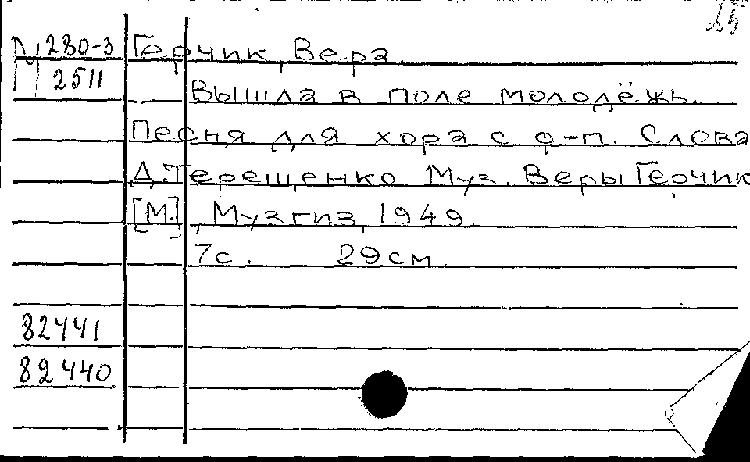 М 280-3
2511
Герчик, Вера
Вышла в поле молодёжь.
Песня для хора с ф-п. Слова
Д. Терещенко Муз. Веры Герчик
[М.], Музгиз, 1949.
7с. 29см.
82441
82440